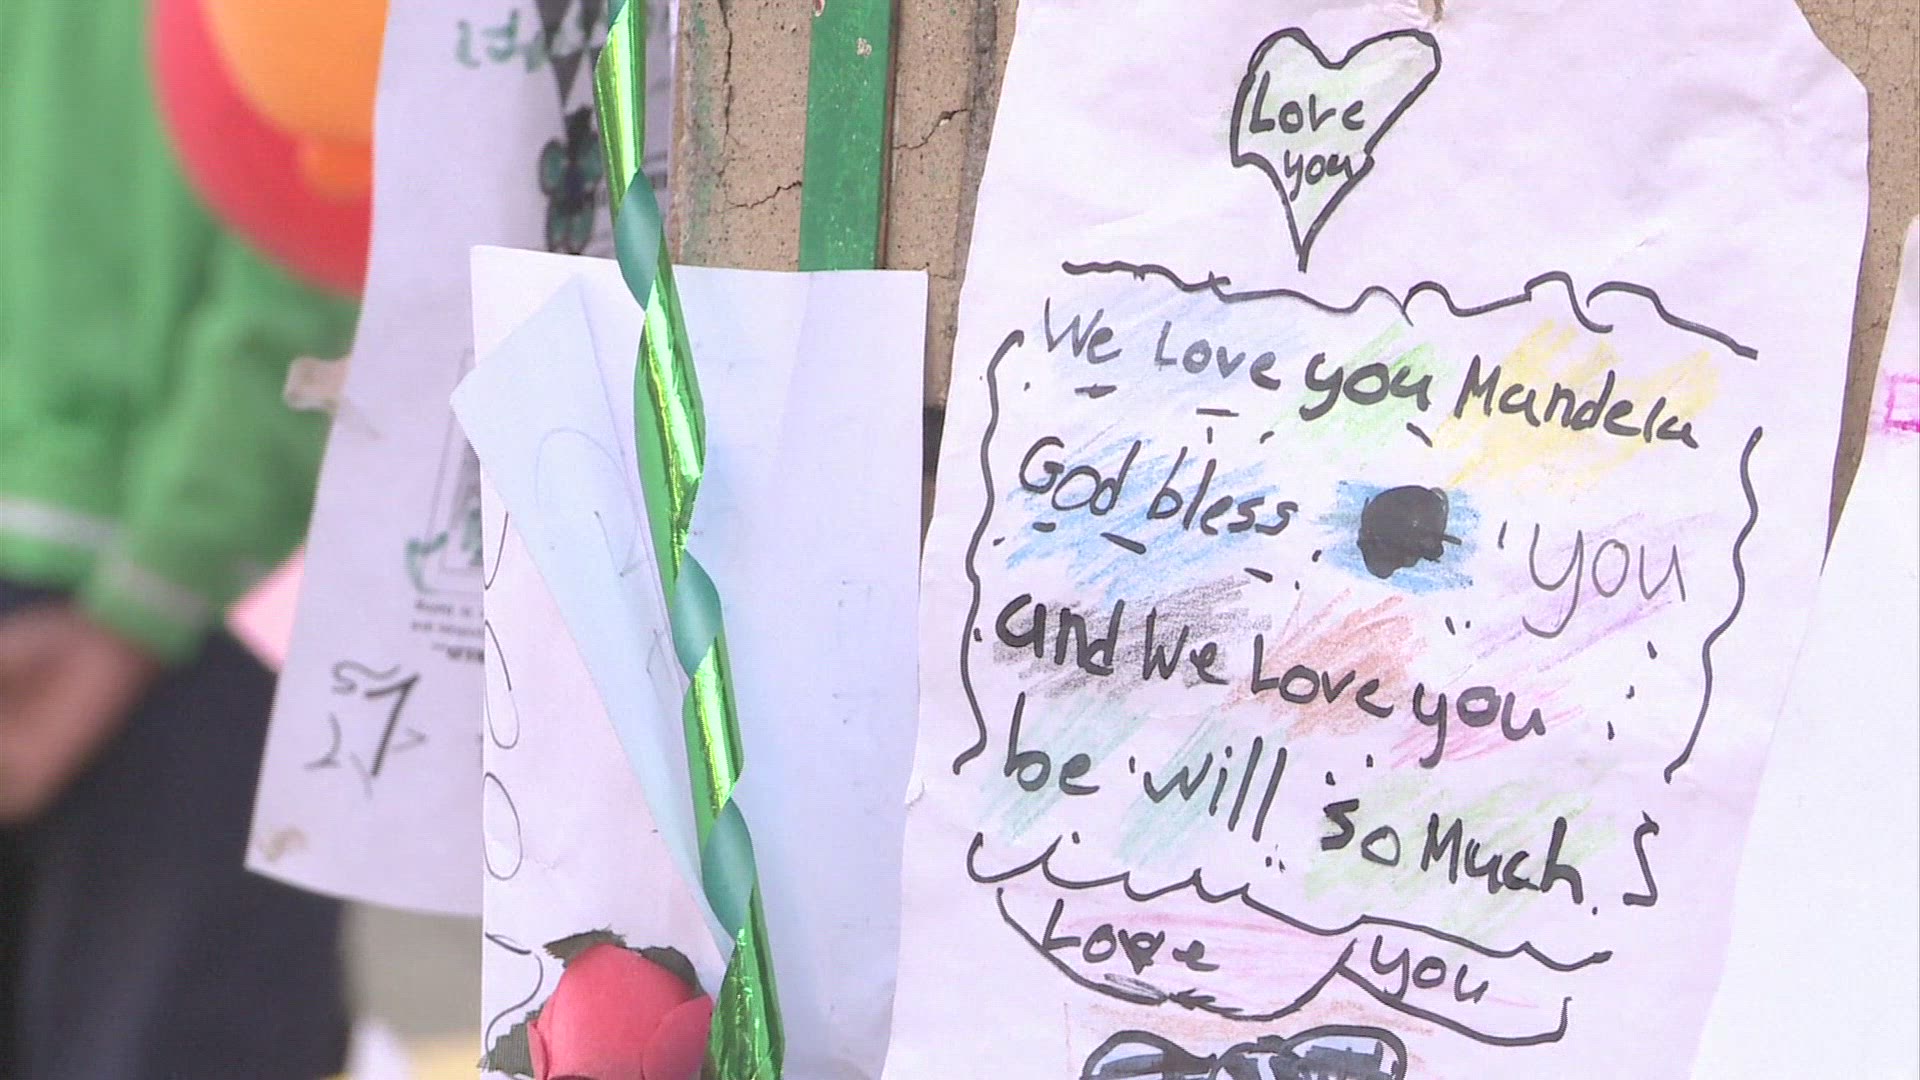 Love
you
We Love you Mandela
God bless you
and We Love you
be will so Much
Love you